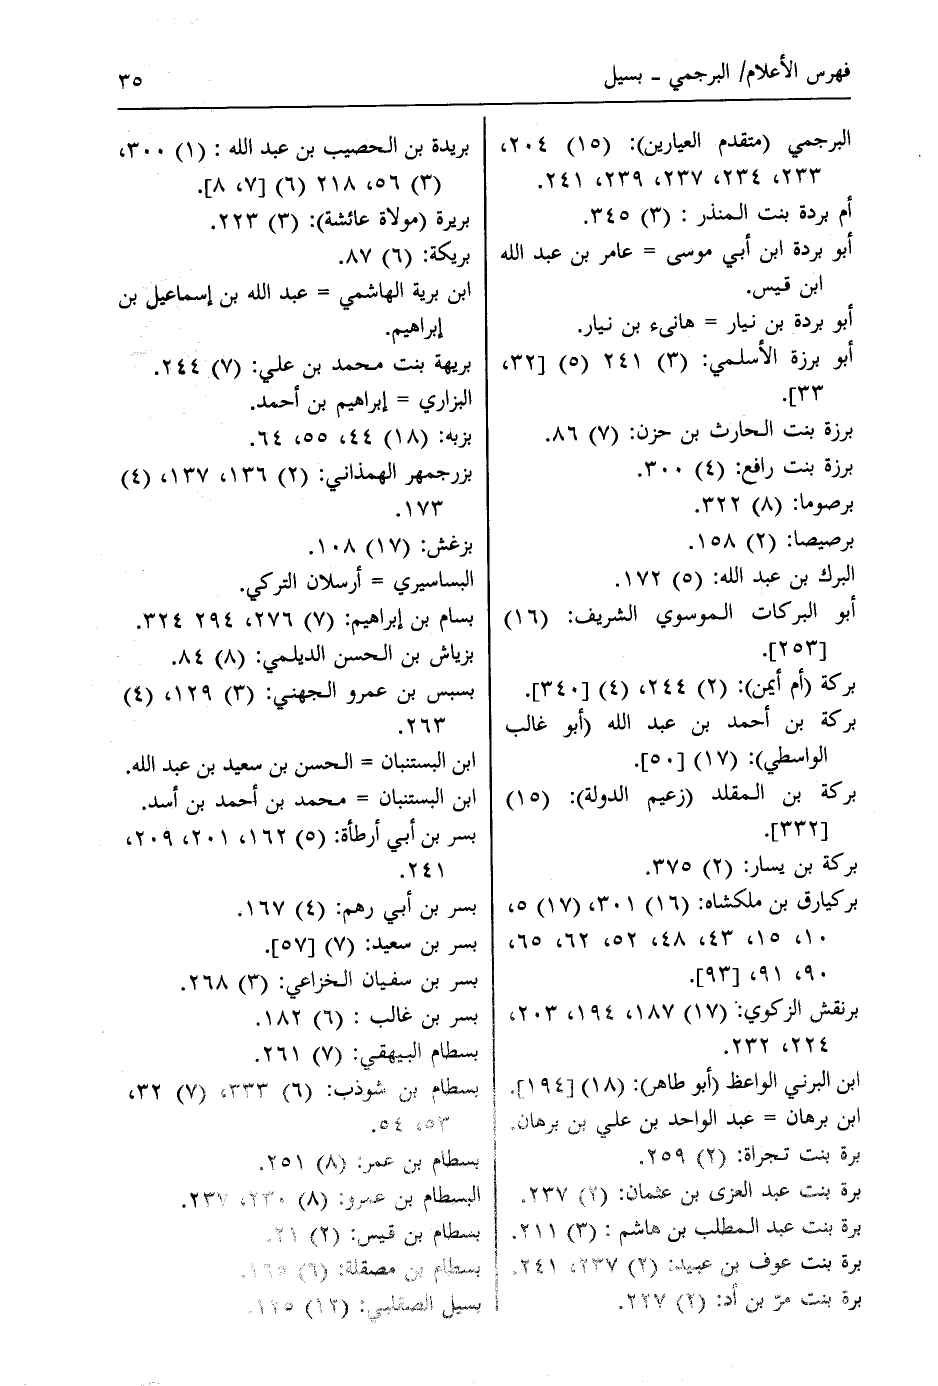 فهرس الأعلام/ البرجمي ـ بسيل
٣٥
البرجمي (متقدم العيارين): (١٥) ٢٠٤،
٢٣٣، ٢٣٤، ٢٣٧، ٢٣٩، ٢٤١.
أم بردة بنت المنذر : (٣) ٣٤٥.
أبو بردة ابن أبي موسى = عامر بن عبد الله
ابن قيس.
أبو بردة بن نيار = هانىء بن نيار.
أبو برزة الأسلمي: (٣) ٢٤١ (٥) [٣٢،
٣٣].
برزة بنت الحارث بن حزن: (٧) ٨٦.
برزة بنت رافع: (٤) ٣٠٠.
برصوما: (٨) ٣٢٢.
برصيصا: (٢) ١٥٨.
البرك بن عبد الله: (٥) ١٧٢.
أبو البركات الموسوي الشريف: (١٦)
[٢٥٣].
بركة (أم أيمن): (٢) ٢٤٤، (٤) [٣٤٠].
بركة بن أحمد بن عبد الله (أبو غالب
الواسطي): (١٧) [٥٠].
بركة بن المقلد (زعيم الدولة): (١٥)
[٣٣٢].
بركة بن يسار: (٢) ٣٧٥.
بركيارق بن ملكشاه: (١٦) ٣٠١، (١٧) ٥،
١٠، ١٥، ٤٣، ٤٨، ٥٢، ٦٢، ٦٥،
٩٠، ٩١، [٩٣].
برنقش الزكوي: (١٧) ١٨٧، ١٩٤، ٢٠٣،
٢٢٤، ٢٣٢.
ابن البرني الواعظ (أبو طاهر): (١٨) [١٩٤].
ابن برهان = عبد الواحد بن علي بن برهان.
برة بنت تجراة: (٢) ٢٥٩.
برة بنت عبد العزى بن عثمان: (٢) ٢٣٧.
برة بنت عبد المطلب بن هاشم : (٣) ٢١١.
برة بنت عوف بن عبيد: (٢) ٢٣٧، ٢٤١.
برة بنت مرّ بن أد: (٢) ٢٢٧.
بريدة بن الحصيب بن عبد الله : (١) ٣٠٠،
(٣) ٥٦، ٢١٨ (٦) [٧، ٨].
بريرة (مولاة عائشة): (٣) ٢٢٣.
بريكة: (٦) ٨٧.
ابن برية الهاشمي = عبد الله بن إسماعيل بن
إبراهيم.
بريهة بنت محمد بن علي: (٧) ٢٤٤.
البزاري = إبراهيم بن أحمد.
بزبه: (١٨) ٤٤، ٥٥، ٦٤.
بزرجمهر الهمذاني: (٢) ١٣٦، ١٣٧، (٤)
١٧٣.
بزغش: (١٧) ١٠٨.
البساسيري = أرسلان التركي.
بسام بن إبراهيم: (٧) ٢٧٦، ٢٩٤ ٣٢٤.
بزياش بن الحسن الديلمي: (٨) ٨٤.
بسبس بن عمرو الجهني: (٣) ١٢٩، (٤)
٢٦٣.
ابن البستنبان = الحسن بن سعيد بن عبد الله.
ابن البستنبان = محمد بن أحمد بن أسد.
بسر بن أبي أرطأة: (٥) ١٦٢، ٢٠١، ٢٠٩،
٢٤١.
بسر بن أبي رهم: (٤) ١٦٧.
بسر بن سعيد: (٧) [٥٧].
بسر بن سفيان الخزاعي: (٣) ٢٦٨.
بسر بن غالب : (٦) ١٨٢.
بسطام البيهقي: (٧) ٢٦١.
بسطام بن شوذب: (٦) ٣٣٣، (٧) ٣٢،
٥٣، ٥٤.
بسطام بن عمر: (٨) ٢٥١.
البسطام بن عمرو: (٨) ٢٣٠، ٢٣٧.
بسطام بن قيس: (٢) ٢١.
بسطام بن مصقلة: (٦) ١٦٥.
بسيل الصقلبي: (١٢) ١٢٥.